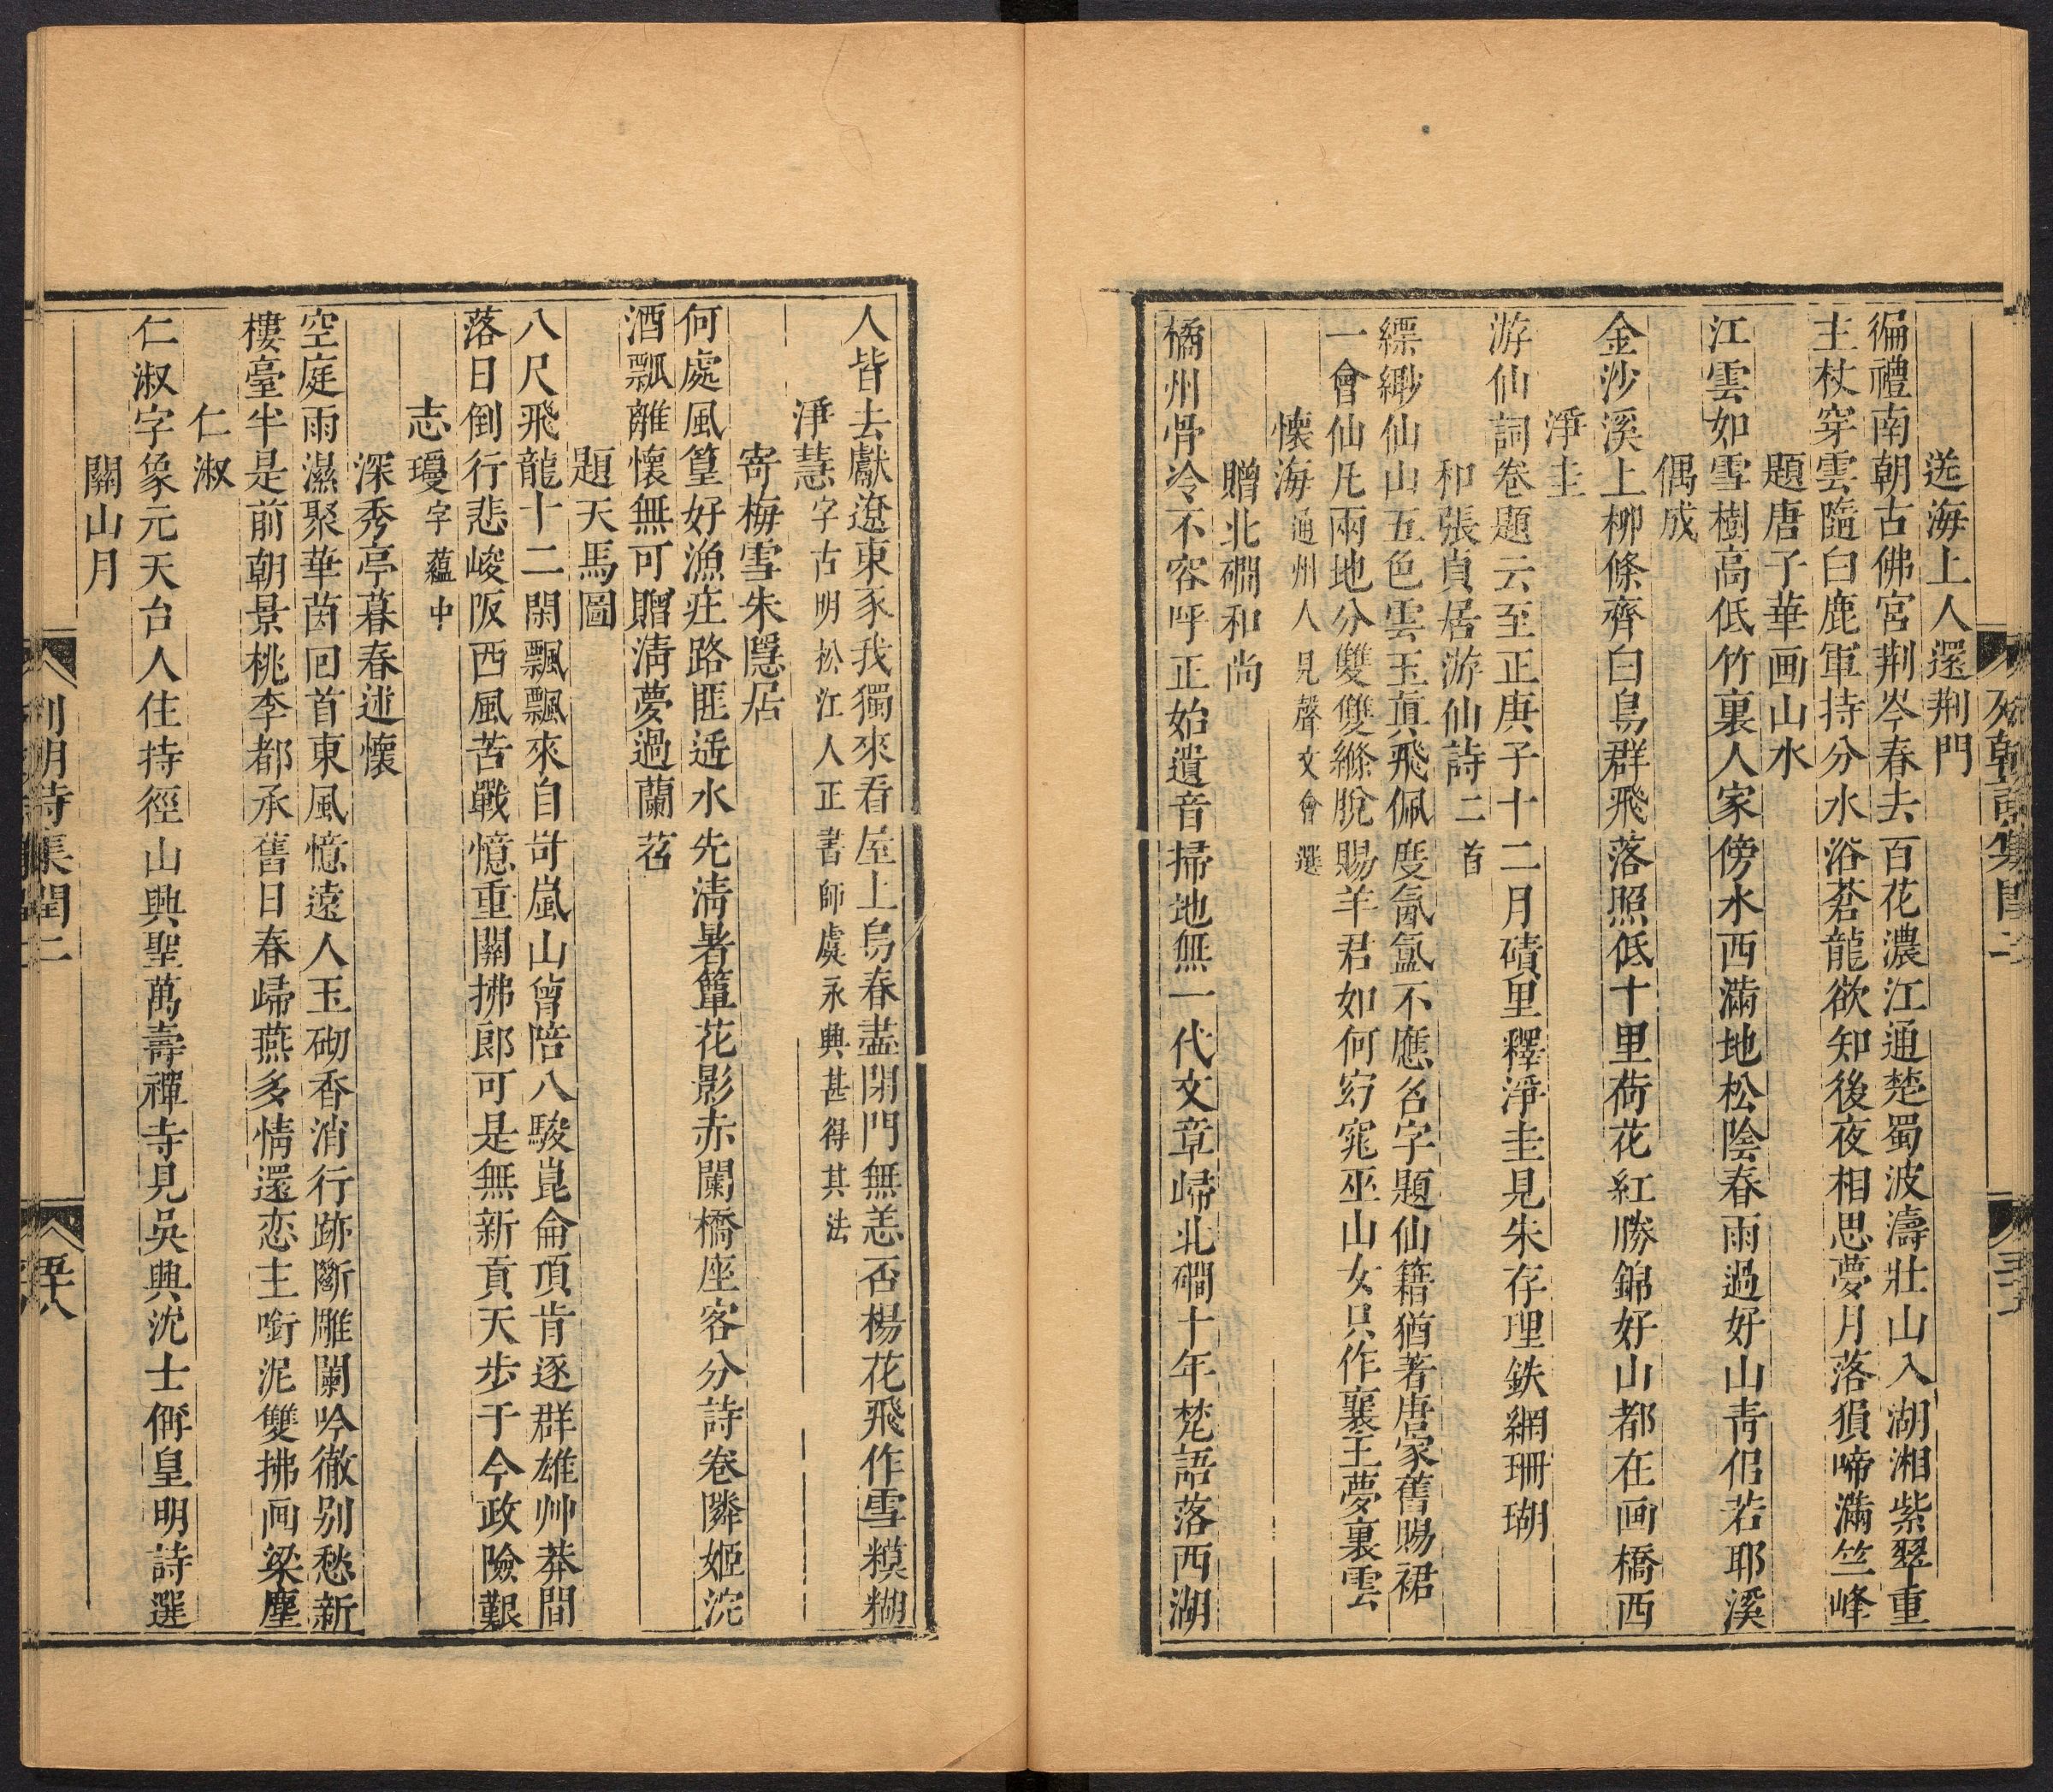 送海上人還荆門
徧禮南朝古佛宮荆岑春去百花濃江通楚蜀波濤壯山入湖湘紫翠重
主杖穿雲隨白鹿軍持分水浴蒼龍欲知後夜相思夢月落猿啼滿竺峰
題唐子華画山水
江雲如雪樹高低竹裏人家傍水西滿地松陰春雨過好山青似若耶溪
偶成
金沙溪上柳條齊白鳥群飛落照低十里荷花紅勝錦好山都在画橋西
淨圭
游仙詞卷題云至正庚子十二月磧里釋淨圭見朱存理鉄網珊瑚
和張貞居游仙詩二首
縹緲仙山五色雲玉眞飛佩度氤氳不應名字題仙籍猶著唐家舊賜裙
一會仙凡兩地分雙雙絛脫賜羊君如何窈窕巫山女只作襄王夢裏雲
懷海通州人見聲文會選
贈北磵和尚
橘州骨冷不容呼正始遺音掃地無一代文章歸北磵十年梵語落西湖
人皆去獻遼東豕我獨來看屋上烏春盡閉門無恙否楊花飛作雪糢糊
淨慧字古明松江人正書師處永興甚得其法
寄梅雪朱隱居
何處風篁好漁庄路匪迂水先淸暑簟花影赤闌橋座客分詩卷隣姬浣
酒瓢離懷無可贈淸夢過蘭苕
題天馬圖
八尺飛龍十二閑飄飄來自岢嵐山曾陪八駿崑侖頂肯逐群雄帅莽間
落日倒行悲峻阪西風苦戰憶重關拂郎可是無新貢天步于今政險艱
志瓊字蘊中
深秀亭暮春述懷
空庭雨濕聚華茵回首東風憶遠人玉砌香消行跡斷雕闌吟徹別愁新
樓臺半是前朝景桃李都承舊日春歸燕多情還恋主啣泥雙拂画梁塵
仁淑
仁淑字象元天台人住持徑山興聖萬壽禪寺見吳興沈士偁皇明詩選
關山月
列朝詩集閏二